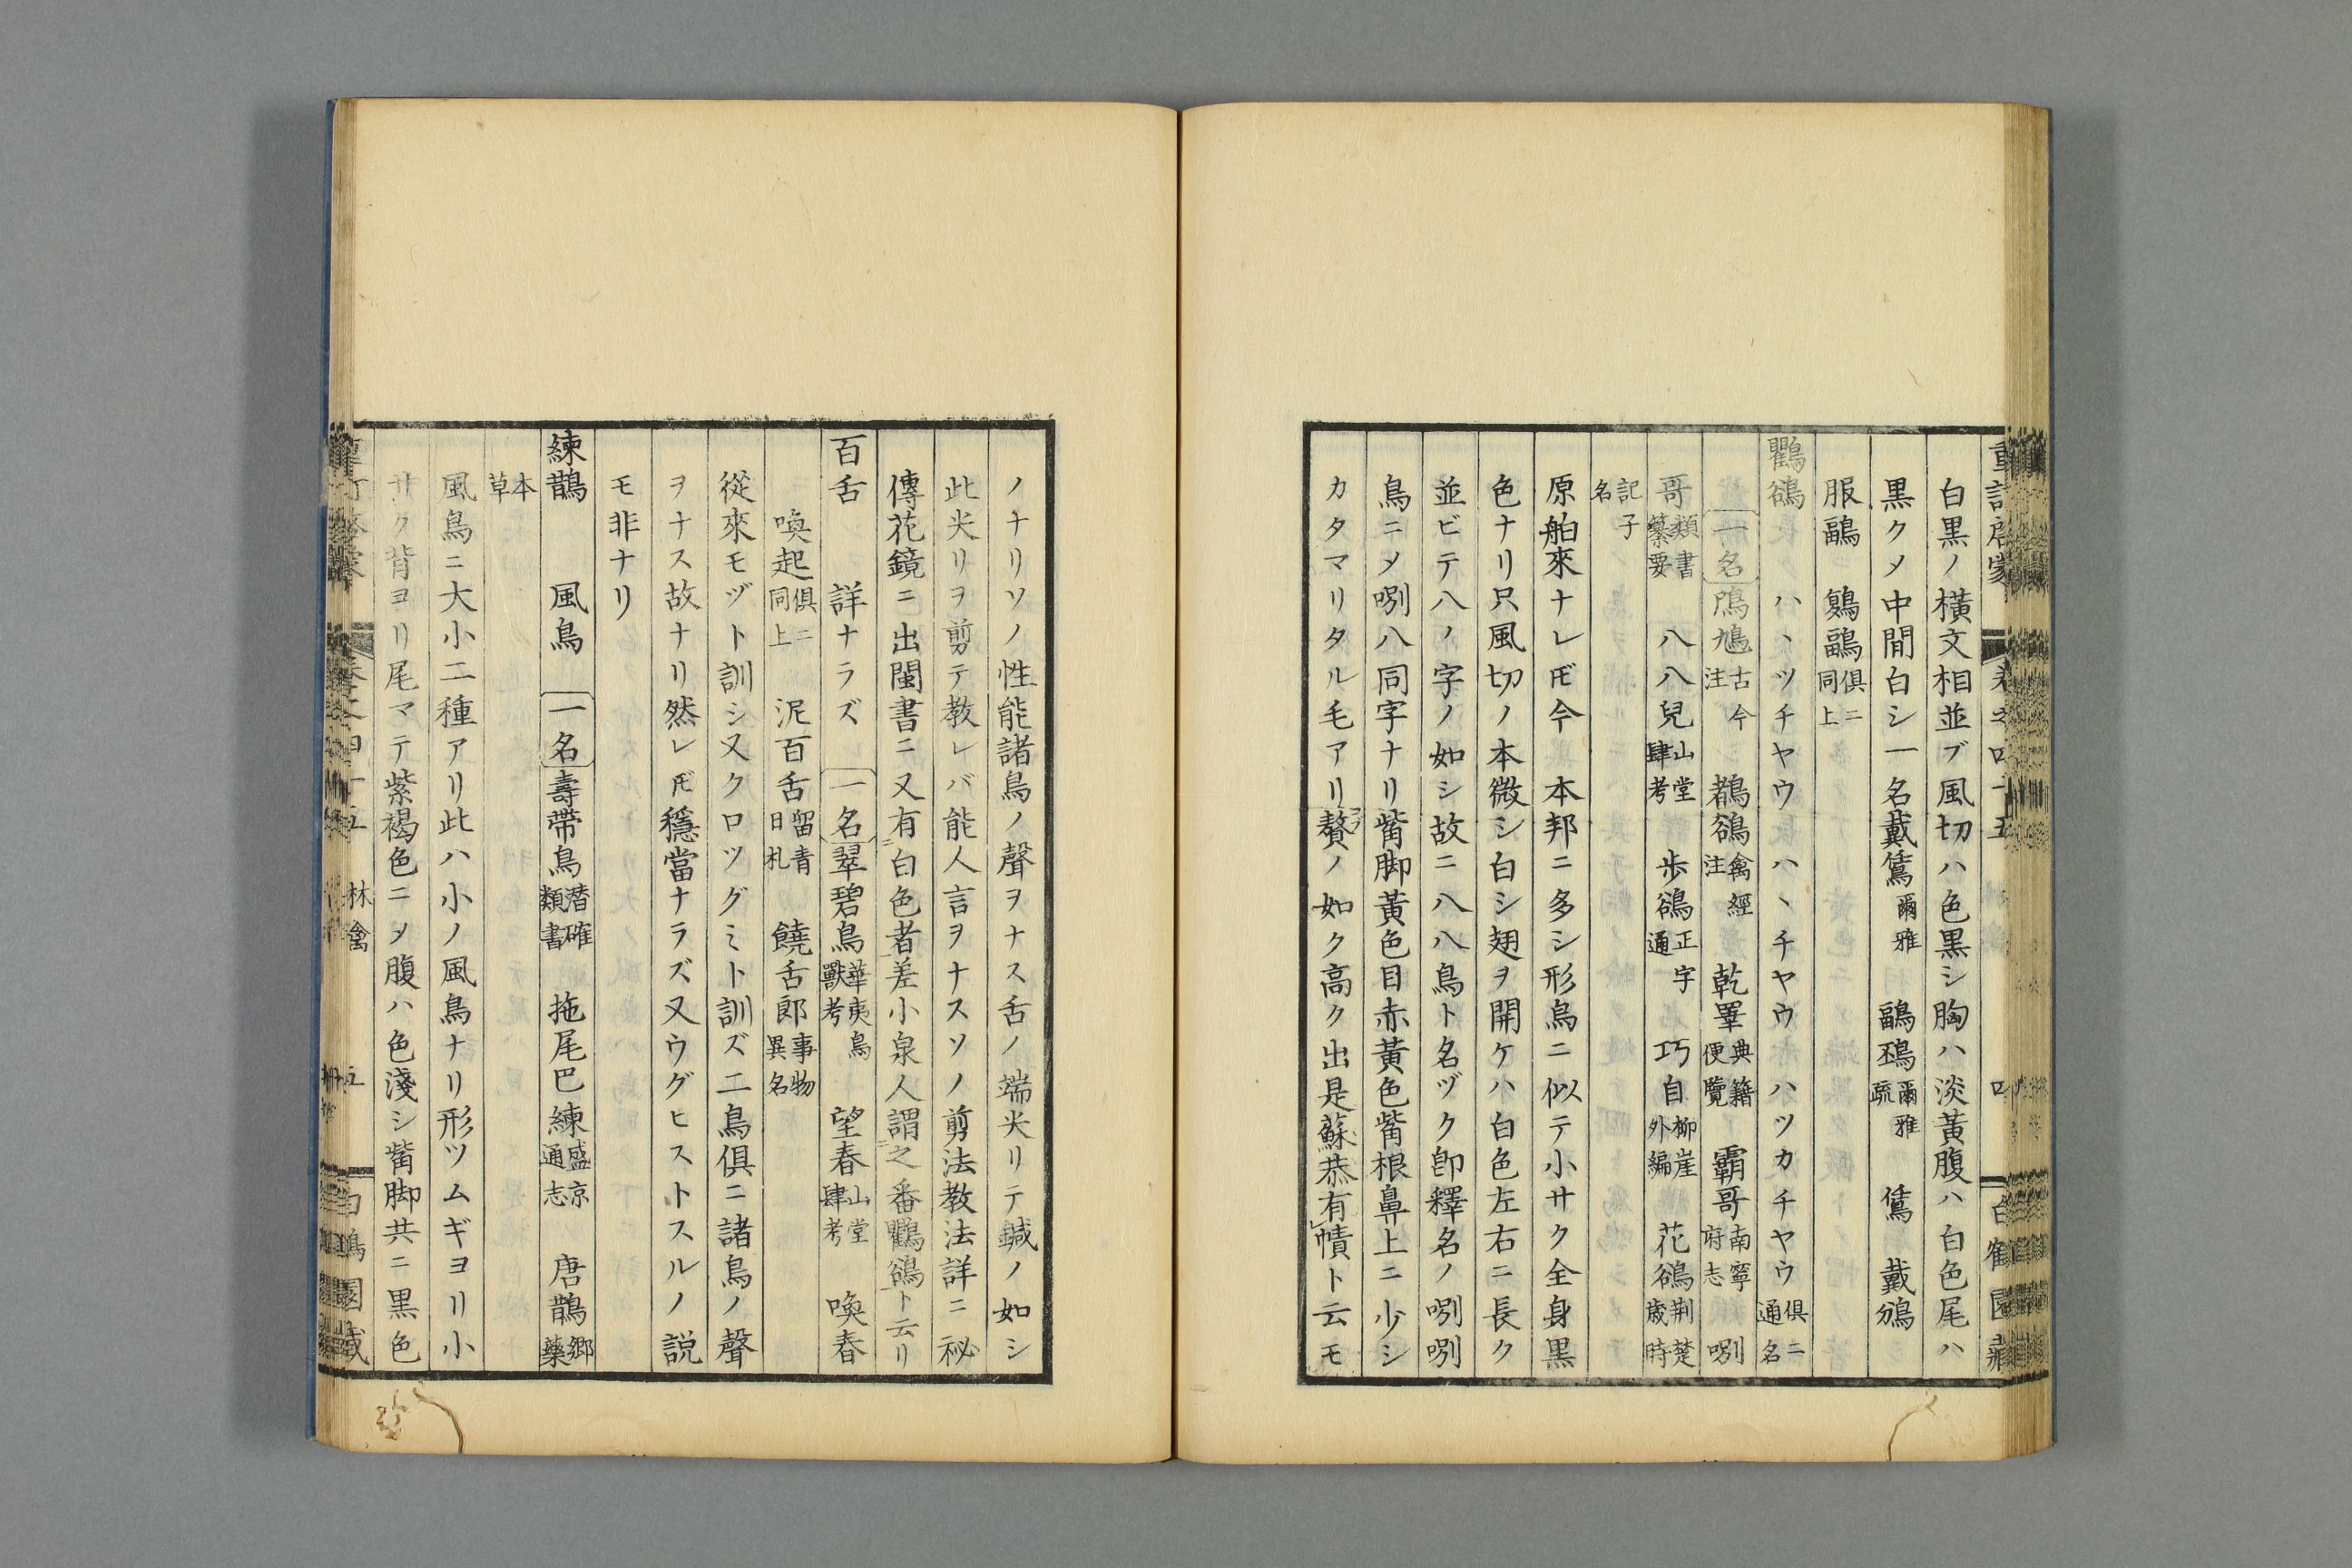 白黒ノ橫文相並ブ風切ハ色黒シ胸ハ淡黃腹ハ白色尾ハ
黒クメ中間白シ一名戴鵀爾雅 鶝鴔爾雅疏 鵀 戴鳻
服鶝 鶭鶝俱ニ同上
鸜鵒 ハヽツチヤウ ハヽチヤウ ハツカチヤウ俱ニ通名
一名 鳲鳩古今注 鸐鵒禽經注 乾睪典籍便覽 霸哥南寧府志 唎
哥類書纂要 八八兒山堂肆考 步鵒正字通 巧自柳崖外編 花鵒荆楚歲時
記 名子
原舶來ナレ𪜈今 本邦ニ多シ形烏ニ似テ小サク全身黒
色ナリ只風切ノ本微シ白シ翅ヲ開ケハ白色左右ニ長ク
並ビテ八ノ字ノ如シ故ニ八八鳥ト名ヅク卽釋名ノ唎唎
鳥ニメ唎八同字ナリ觜脚黃色目赤黃色觜根鼻上ニ少シ
カタマリタル毛アリ贅ノ如ク高ク出是蘇恭有幘ト云モ
ノナリソノ性能諸鳥ノ聲ヲナス舌ノ端尖リテ鍼ノ如シ
此尖リヲ剪テ教レバ能人言ヲナスソノ剪法教法詳ニ祕
傳花鏡ニ出閩書ニ又有白色者差小泉人謂之番鸜鵒ト云リ
百舌 詳ナラズ 一名 翠碧鳥華夷鳥獸考 望春山堂肆考 喚春
喚起俱ニ同上 泥百舌留青日札 饒舌郎事物異名
從來モヅト訓シ又クロツグミト訓ズ二鳥俱ニ諸鳥ノ聲
ヲナス故ナリ然レ𪜈穩當ナラズ又ウグヒストスルノ説
モ非ナリ
練鵲 風鳥 一名 壽帶鳥潛確類書 拖尾巴練盛京通志 唐鵲鄉藥
本草
風鳥ニ大小二種アリ此ハ小ノ風鳥ナリ形ツムギヨリ小
サク背ヨリ尾マテ紫褐色ニメ腹ハ色淺シ觜脚共ニ黒色
林禽 五